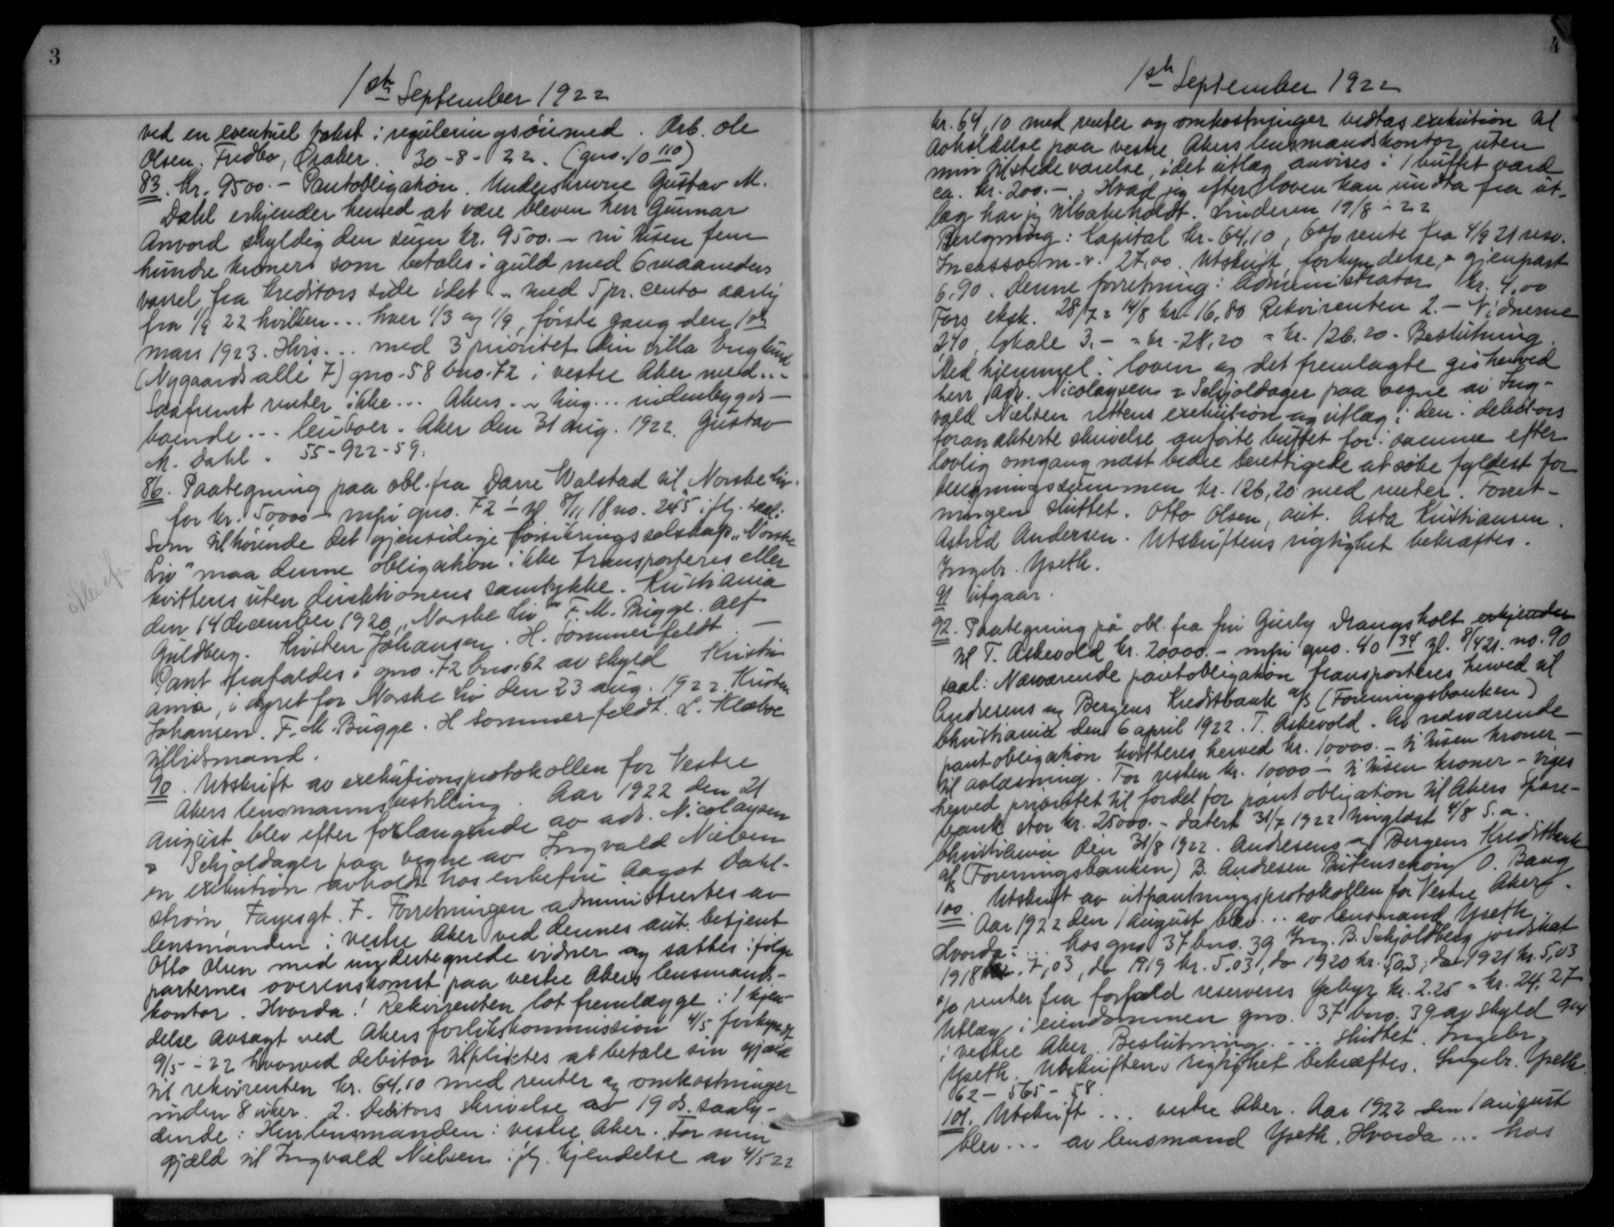 3
1ste September 1922
ved en eventuel takst i reguleringsøiemed. Arb. ole
Olsen. Fredbo, Øraker. 30-8-22. (gno. 10 110)
83. Kr. 9500.- Pantobligation. Underskrevne Gustav M.
Dahl erkjender herved at være bleven herr Gunnar
Anvord skyldig den sum kr. 9500.- ni tusen fem
hundre kroner som betales i guld med 6 maaneders
varsel fra kreditors side idet - med 5 pr. cento aarlig
fra 1/9 22 hvilken... hver 1/3 og 1/9, første gang den 1ste
mars 1923. Hvis... med 3 prioritet min villa Englund
(Nygaards allé 7) gno. 58 bno. 72 i vestre Aker med...
Saafremt renter ikke... Akers... hug... indenbygds-
boende... lenboer. Aker den 31 aug. 1922. Gustav
M. Dahl. 55-922-59.
86. Paategning paa obl. fra Darre Walstad til "Norske Liv"
for kr. 50000 - mfri gno. 72 - gl. 8/11 18 no. 245 iflg. saal:
Som tilhørende det gjensidige forsikringsselskap "Norske
Liv" maa denne obligation ikke transporteres eller
kvitteres uten direktionens samtykke. Kristiania
den 14 december 1920, "Norske Liv" F. M. Bugge. Alf
Guldberg. Kristen Johansen. H. Sommerfeldt -
Pant frafaldes i gno. 72 bno. 62 av skyld Kristi-
ania, i styret for Norske Liv den 23 aug. 1922. Kristen
Johansen. F. M. Bugge. H Sommerfeldt. L. Klæboe
tillidsmand.
90. Utskrift av exekutionsprotokollen for Vestre
Akers lensmannsbestilling. Aar 1922 den 21
august blev efter forlangende av adv. Nicolaysen
& Schjoldager paa vegne av Ingvald Nielsen
en exekution avholdt hos enkefru Aagot Dahl-
strøm, Fayesgt. 7. Forretningen administrertes av
lensmanden i vestre Aker ved dennes aut. betjent
Otto Olsen med undertegnede vidner og sattes ifølge
parternes overenskomst paa vestre Akers lensmands-
kontor. Hvorda! Rekvirenten lot fremlægge: 1 kjen-
delse avsagt ved Akers forlikskommission 4/5 forkyndt
9/5-22 hvorved debitor tilpliktes at betale sin gjæld
til rekvirenten kr. 64,10 med renter og omkostninger
inden 8 uker. 2. Debitors skrivelse av 19 ds. saaly-
dende: Herr lensmanden i vestre Aker. For min
gjæld til Ingvald Nielsen iflg. kjendelse av 4/5 22
4
1ste September 1922
kr. 64,10 med renter og omkostninger vedtas exekution at
avholdelse paa vestre Akers lensmandskontor uten
min tilstedeværelse, idet utlæg anvises i 1 buffet værd
ca. kr. 200.-. Hvad jeg efter loven kan undta fra ut-
læg har jeg tilbakeholdt. Linderen 19/8-22
Beregning: Kapital kr. 64,10, 6% rente fra 4/9 21 resv.
Incassoom.v. 27,00. Utskrift, forkyndelse, gjenpart
6,90. Denne forretning: Administrator kr. 4,00
Fors. eksk. 28/7 & 14/8 kr. 16,80 Rekvirenten 2.- Vidnerne
2,40, lokale 3.- = kr. 28,20 = kr. 126.20 - Beslutning.
Med hjemmel i loven og det fremlagte gis herved
herr Adv. Nicolaysen & Schjoldager paa vegne av Ing-
vald Nielsen rettens exekution og utlæg i den i debitors
foranakterte skrivelse anførte buffet for i samme efter
lovlig omgang næst bedre berettigede at søke fyldest for
beregningssummen kr. 126,20 med renter. Forret-
ningen sluttet. Otto Olsen, aut. Asta Kristiansen.
Astrid Andersen. Utskriftens rigtighet bekræftes.
Ingebr. Yseth.
91 utgaar.
92. Paategning på obl. fra fru Gurly Drangsholt erkjender
til T. Askevold kr. 20000.- mfri gno. 40 34 gl. 8/4 21. no. 90
saal: Nærværende pantobligation transporteres herved til
Andresens og Bergens Kreditbank a/s (Foreningsbanken)
Christiania den 6 april 1922. T. Askevold. Av nærværende
pantobligation kvitteres herved kr. 10000.- ti tusen kroner -
til avlæsning. For resten kr. 10000 - ti tusen kroner - viges
herved prioritet til fordel for pantobligation til Akers Spare-
bank stor kr. 25000.- datert 31/7 1922 tinglæst 4/8 s.a.
Christiania den 31/8 1922. Andresens og Bergens Kreditbank
a/s (Foreningsbanken) B. Andresen Butenschøn O. Bang
100. Utskrift av utpantningsprotokollen for Vestre Aker.
Aar 1922 den 1 august blev... av lensmand Yseth
Hvorda:... hos gno 37 bno. 39 Ing. B. Schjoldberg jordskat
1918 kr. 7,03, do 1919 kr. 5.03, do 1920 kr. 5,03, do 1921 kr. 5,03
% renter fra forfald reserveres Gebyr kr. 2.25 = kr. 24,27
Utlæg i eiendommen gno. 37 bno. 39 av skyld 904
i vestre Aker. Beslutning.... Sluttet. Ingebr.
Yseth. Utskriftens rigtighet bekræftes. Ingebr. Yseth.
62-565-58.
101. Utskrift... vestre Aker. Aar 1922 den 1 august
blev... av lensmand Yseth. Hvorda... hos